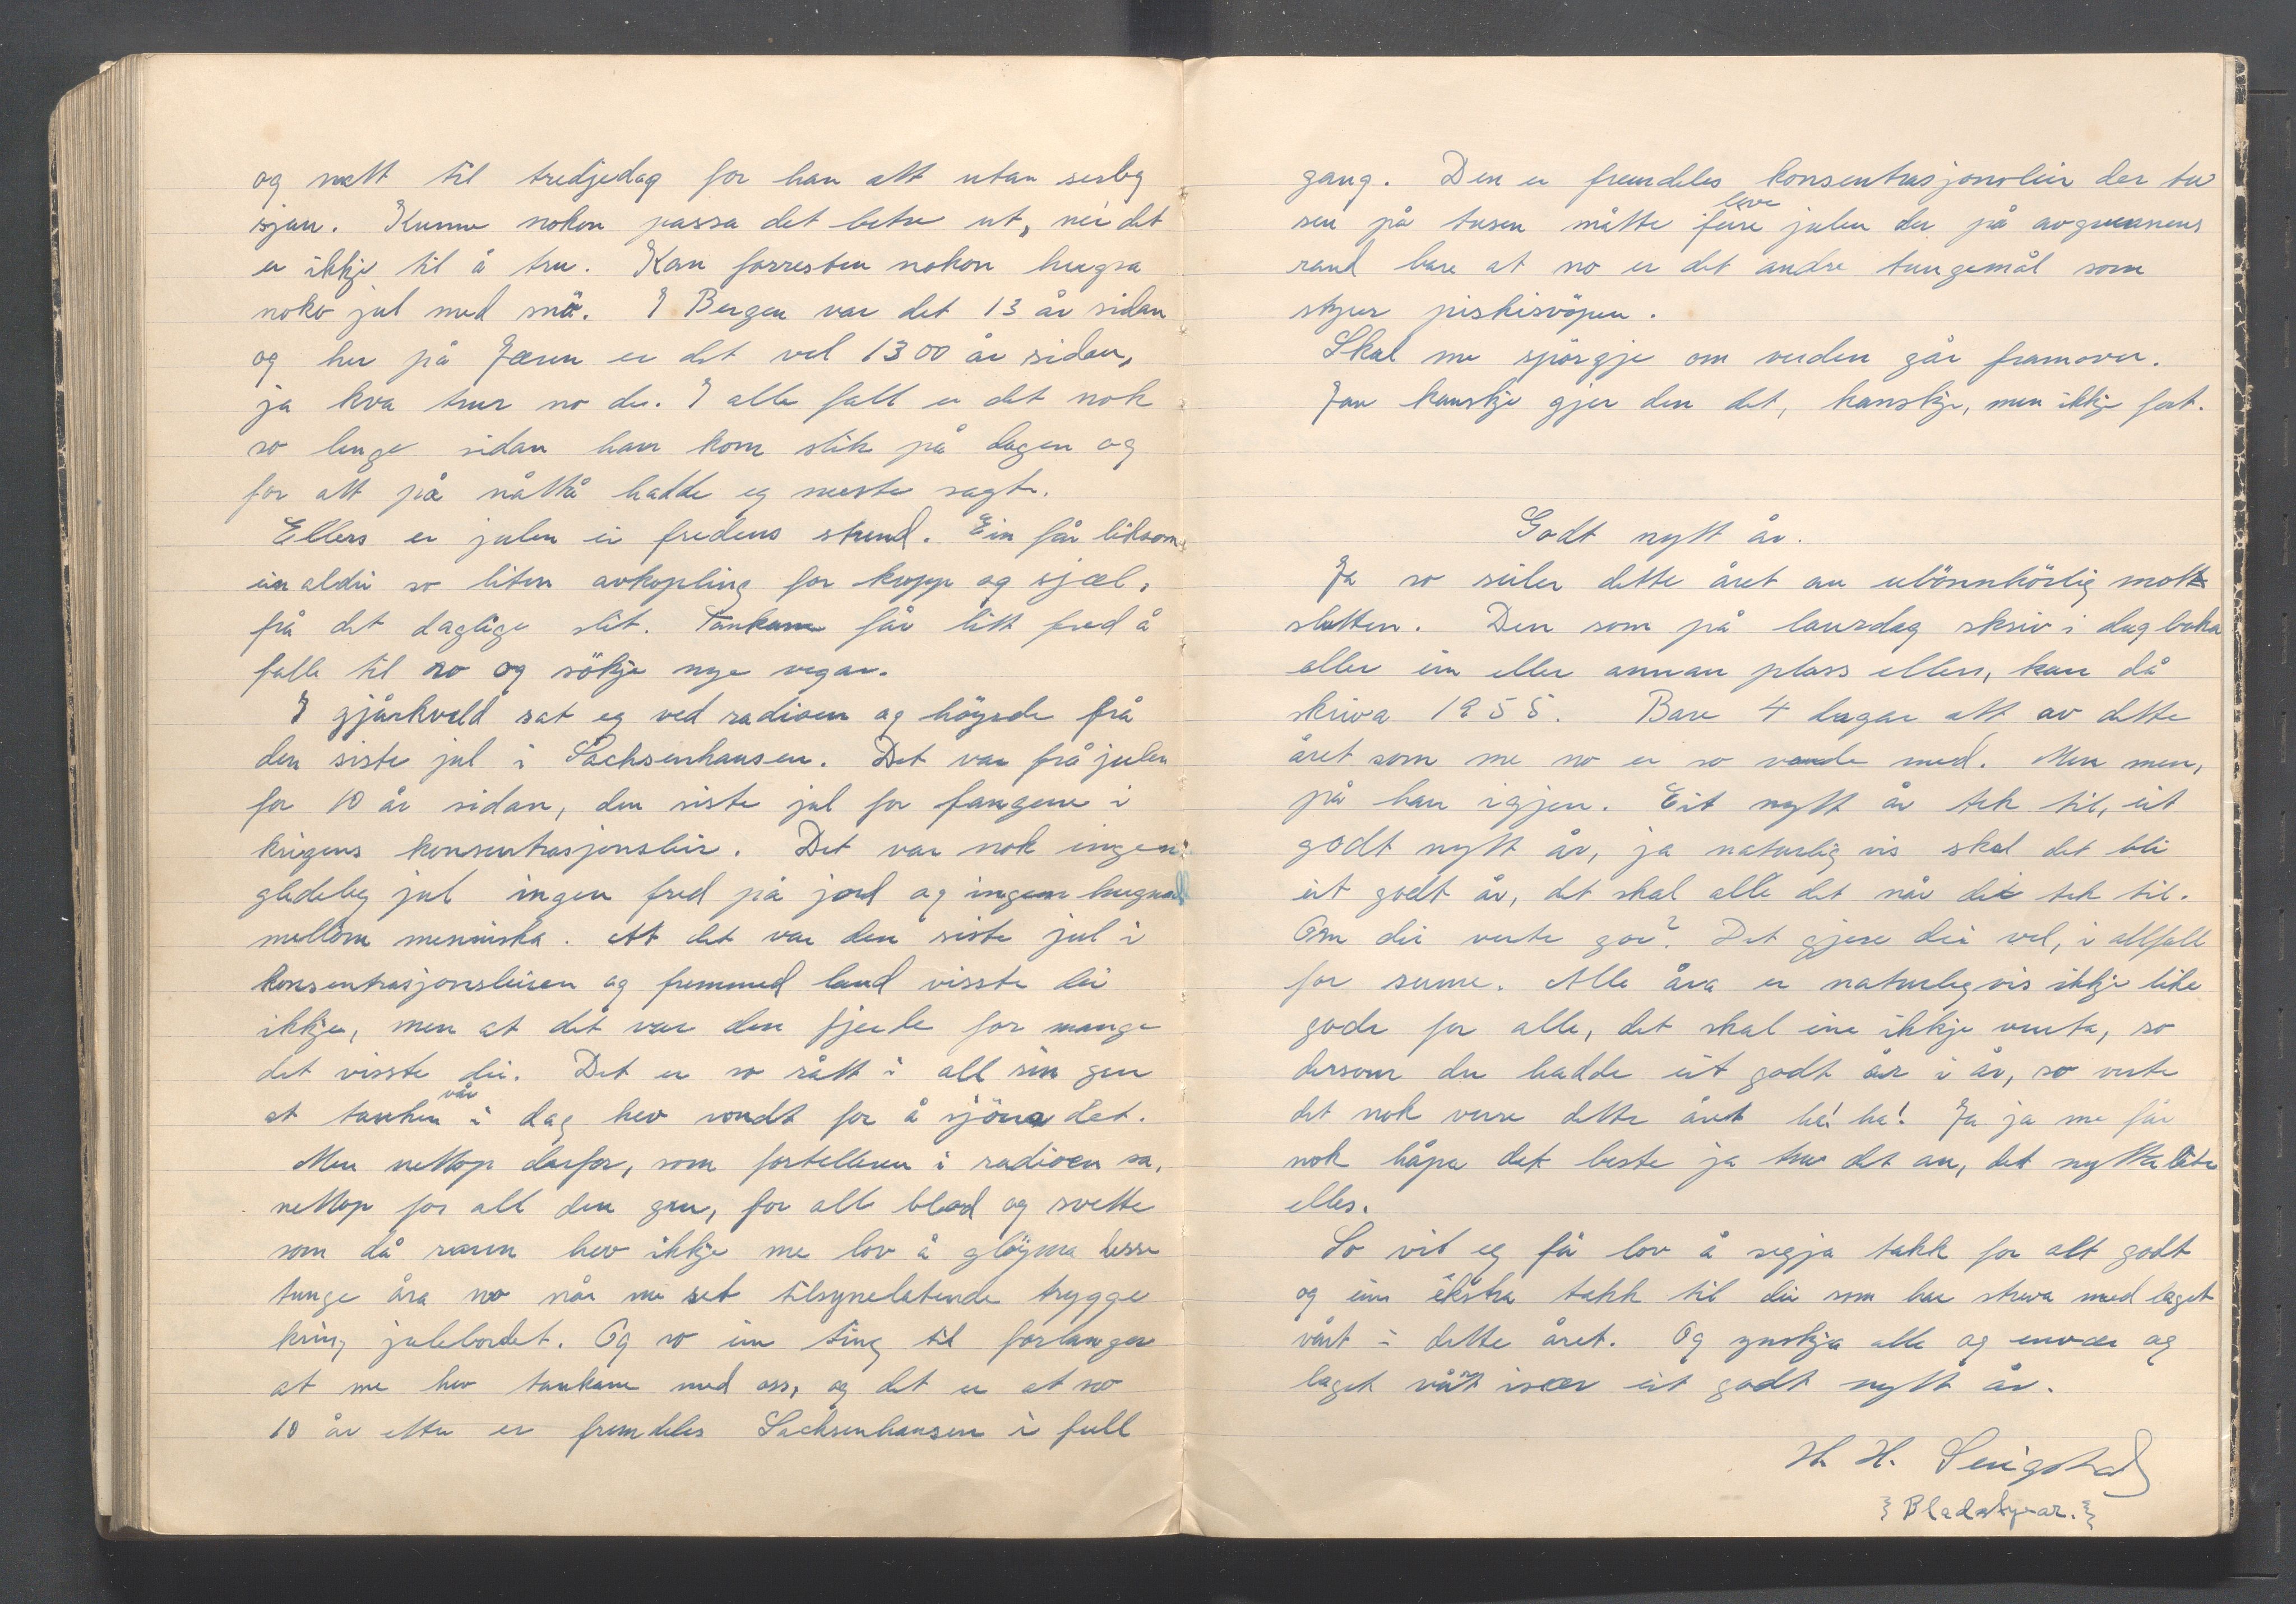 og nett til tredjedag for han att utan serleg
sjau. Kunne nokon passa det betre ut, nei det
er ikkje til å tru. Kan forresten nokon hugsa
noko jul med snö. I Bergen var det 13 år sidan
og her på Jæren er det vel 1300 år sidan,
ja kva trur no de. I alle fall er det nok
so lenge sidan han kom slik på dagen og
for att på nåttå hadde eg næste sagt.
Ellers er julen ei fredens stund. Ein får liksom
ein aldri so liten avkopling for kropp og sjæl,
frå det daglige slit. Tankane får litt fred å
falle til ro og sökje nye vegar.
I gjårkveld sat eg ved radioen og höyrde frå
den siste jul i Sachsenhausen. Det var frå julen
for 10 år sidan, den siste jul for fangene i
krigens konsentrasjonsleir. Det var nok ingen
gledeleg jul ingen fred på jord og ingen hugnad
mellom menniska. At det var den siste jul i
konsentrasjonsleiren og fremmed land visste dei
ikkje, men at det var den fjerde for mange
det visste dei. Det er so rått i all sin gru
at tanken vår i dag hev vondt for å sjöna det.
Men nettop derfor, som fortelleren i radioen sa,
nettop for all den gru, for alle blod og svette
som då rann hev ikkje me lov å glöyma desse
tunge åra no når me set tilsynelatende trygge
kring julebordet. Og so ein ting til forlanger
at me hev tankane med oss, og det er at no
10 år etter er fremdeles Sachsenhausen i full
gang. Den er fremdeles konsentrasjonsleir der tu
sen på tusen måtte leve feire julen der på avgrunnens
rand bare at no er det andre tungemål som
styrer piskisvöpen.
Skal me spörgje om verden går framover.
Jau kanskje gjer den det, kanskje, men ikkje fort.
Godt nytt år.
Ja so seiler dette året au ubönnhörlig mot
slutten. Den som på laurdag skriv i dagboka
eller ein eller annan plass ellers, kan då
skriva 1955. Bare 4 dagar att av dette
året som me no er so vande med. Men men,
på han igjen. Eit nytt år tek til, eit
godt nytt år, ja naturligvis skal det bli
eit godt år, det skal alle det når dei tek til.
Om dei verte goe? Det gjere dei vel, i allfall
for sume. Alle åra er naturlegvis ikkje like
gode for alle, det skal ein ikkje venta, so
dersom du hadde eit godt år i år, so verte
det nok verre dette året ha! ha! Ja ja me får
nok håpa det beste ja tru det au, det nyttar lite
elles.
So vil eg få lov å segja takk for alt godt
og ein ekstra takk til dei som har streva med laget
vårt i dette året. Og ynskja alle og einkvar og
laget vårt især eit godt nytt år.
H. H.
{Bladstyrar.}